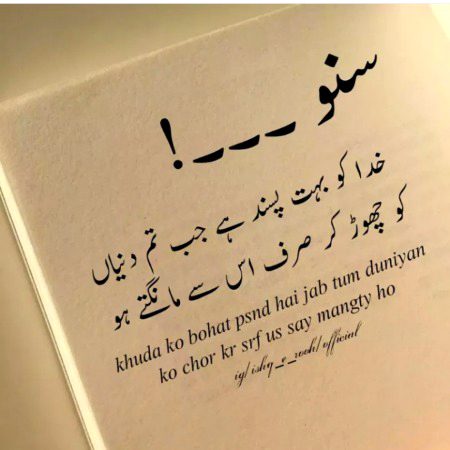 سنو ۔۔۔!
خدا کو بہت پسند ہے جب تم دنیاں
کو چھوڑ کر صرف اس سے مانگتے ہو
khuda ko bohat psnd hai jab tum duniyan
ko chor kr srf us say mangty ho